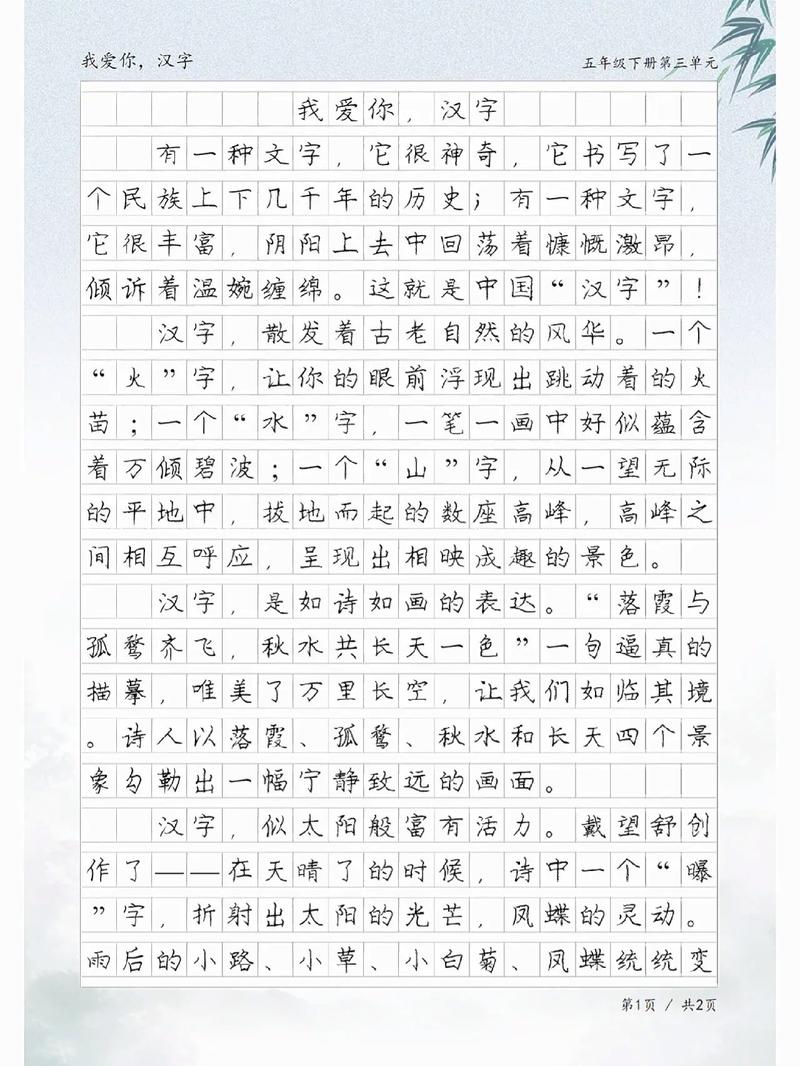 我爱你，汉字
五年级下册第三单元
我爱你，汉字
有一种文字，它很神奇，它书写了一
个民族上下几千年的历史；有一种文字，
它很丰富，阴阳上去中回荡着慷慨激昂，
倾诉着温婉缠绵。这就是中国“汉字”！
汉字，散发着古老自然的风华。一个
“火”字，让你的眼前浮现出跳动着的火
苗；一个“水”字，一笔一画中好似蕴含
着万倾碧波；一个“山”字，从一望无际
的平地中，拔地而起的数座高峰，高峰之
间相互呼应，呈现出相映成趣的景色。
汉字，是如诗如画的表达。“落霞与
孤鹜齐飞，秋水共长天一色”一句逼真的
描摹，唯美了万里长空，让我们如临其境
。诗人以落霞、孤鹜、秋水和长天四个景
象勾勒出一幅宁静致远的画面。
汉字，似太阳般富有活力。戴望舒创
作了——在天晴了的时候，诗中一个“曝
”字，折射出太阳的光芒，凤蝶的灵动。
雨后的小路、小草、小白菊、凤蝶统统变
第1页 / 共2页